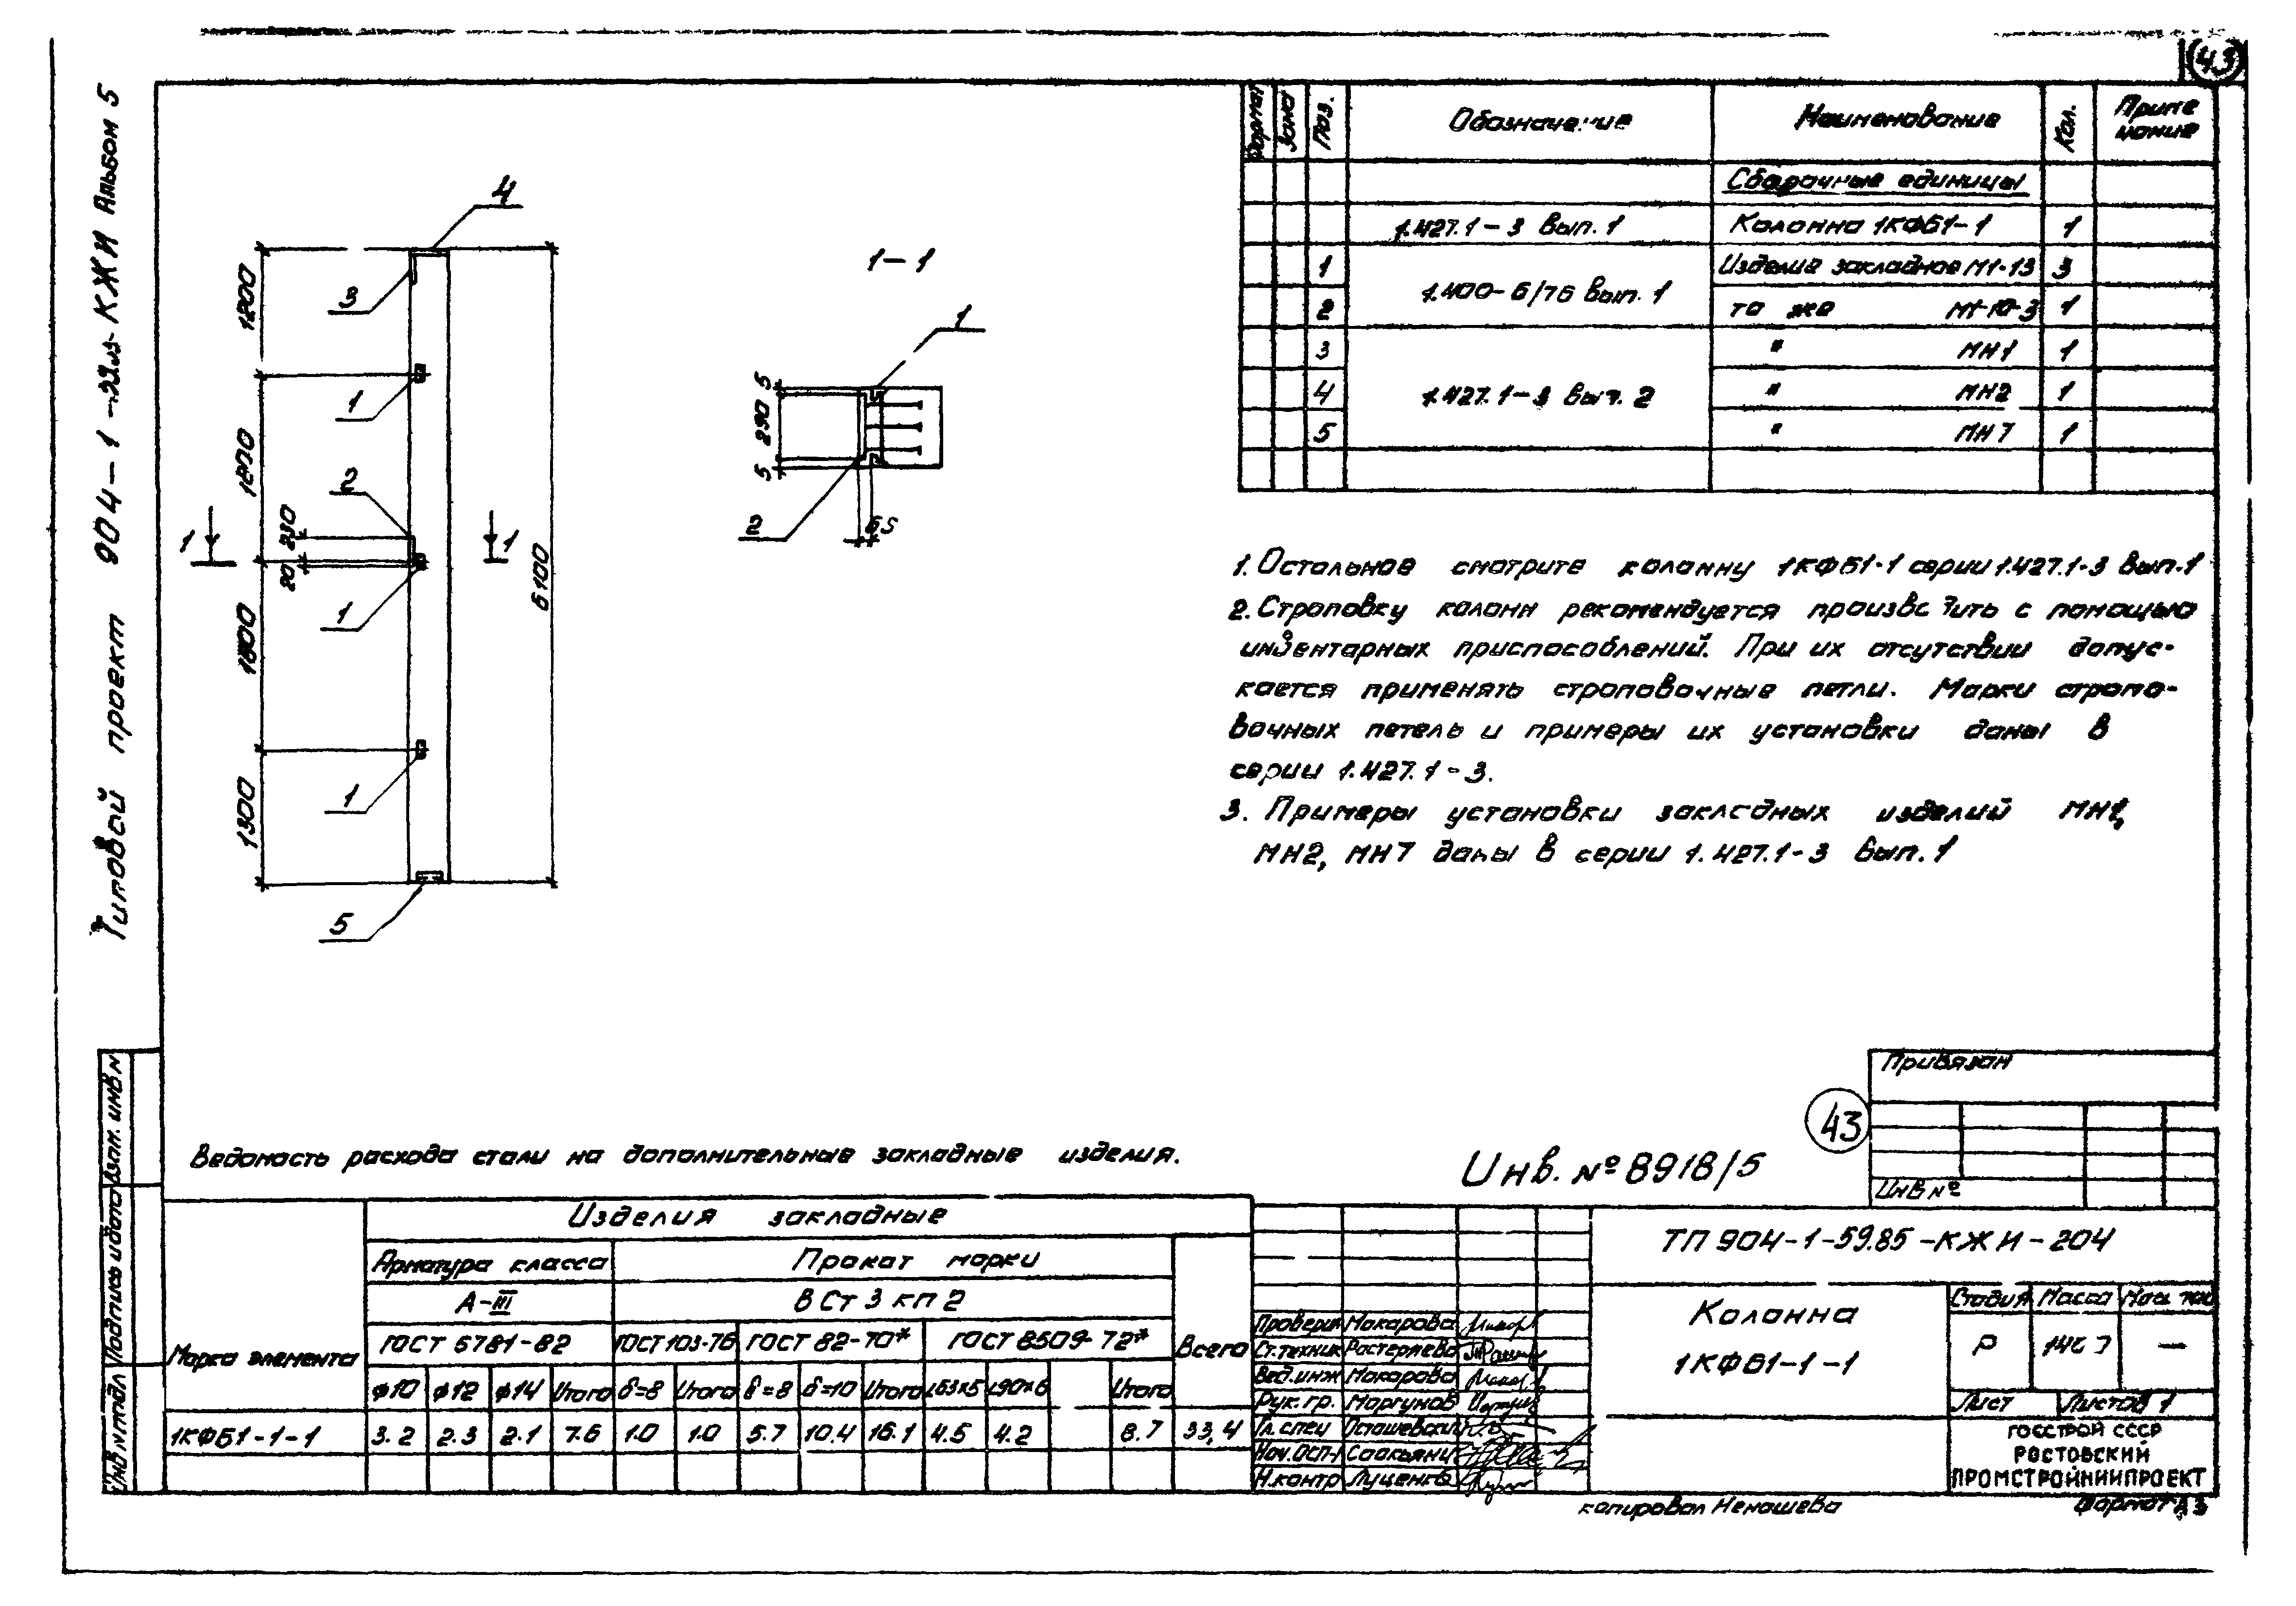 43
Типовой проект 904-1- -КЖИ Альбом 5
4
3
1
2
1
1
5
1200
1800
230
20
1800
1300
6100
1 1
1-1
1
2
5
290
5
65
Формат Зона Поз. Обозначение Наименование Кол. Приме
чание
Сборочные единицы
1.427.1-3 вып. 1 Колонна 1КФБ1-1 1
1 1.400-6/76 вып. 1 Изделие закладное М1-13 3
2 то же М1-10-3 1
3 1.427.1-3 вып. 2 " МН1 1
4 " МН2 1
5 " МН7 1
1. Остальное смотрите колонну 1КФБ1-1 серии 1.427.1-3 вып.1
2. Строповку колонн рекомендуется производить с помощью
инвентарных приспособлений. При их отсутствии допус-
кается применять строповочные петли. Марки стропо-
вочных петель и примеры их установки даны в
серии 1.427.1-3.
3. Примеры установки закладных изделий МН1,
МН2, МН7 даны в серии 1.427.1-3 вып.1
Привязан
Инв №
43
Инв. № 8918/5
Ведомость расхода стали на дополнительные закладные изделия.
Марка элемента Изделия закладные
Арматура класса Прокат марки Всего
А-III ВСт3кп2
ГОСТ 5781-82 ГОСТ 103-76 ГОСТ 82-70* ГОСТ 8509-72*
ф10 ф12 ф14 Итого δ=8 Итого δ=8 δ=10 Итого L63x5 L90x6 Итого
1КФБ1-1-1 3.2 2.3 2.1 7.6 1.0 1.0 5.7 10.4 16.1 4.5 4.2 8.7 33,4
Проверил Макарова
Ст.техник Растерлева
Вед.инж Макарова
Рук.гр. Моргунов
Гл.спец Осташевский
Нач.ОСП-1 Саакьянц
Н.контр Луценко
ТП 904-1-59.85-КЖИ-204
Колонна
1КФБ1-1-1
Стадия Масса Масштаб
Р —
Лист Листов 1
ГОССТРОЙ СССР
РОСТОВСКИЙ
ПРОМСТРОЙНИИПРОЕКТ
копировал Ненашева Формат А3
Инв № подл Подпись и дата Взам. инв №